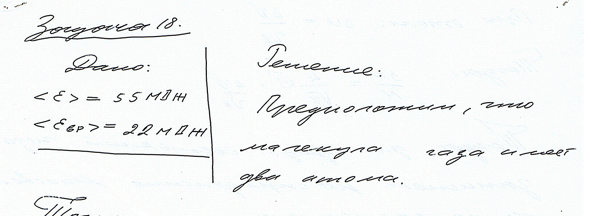 Задача 18.
Дано:
<ε> = 55 мДж
<εвр> = 22 мДж
Решение:
Предположим, что
малекула газа имеет
два атома.